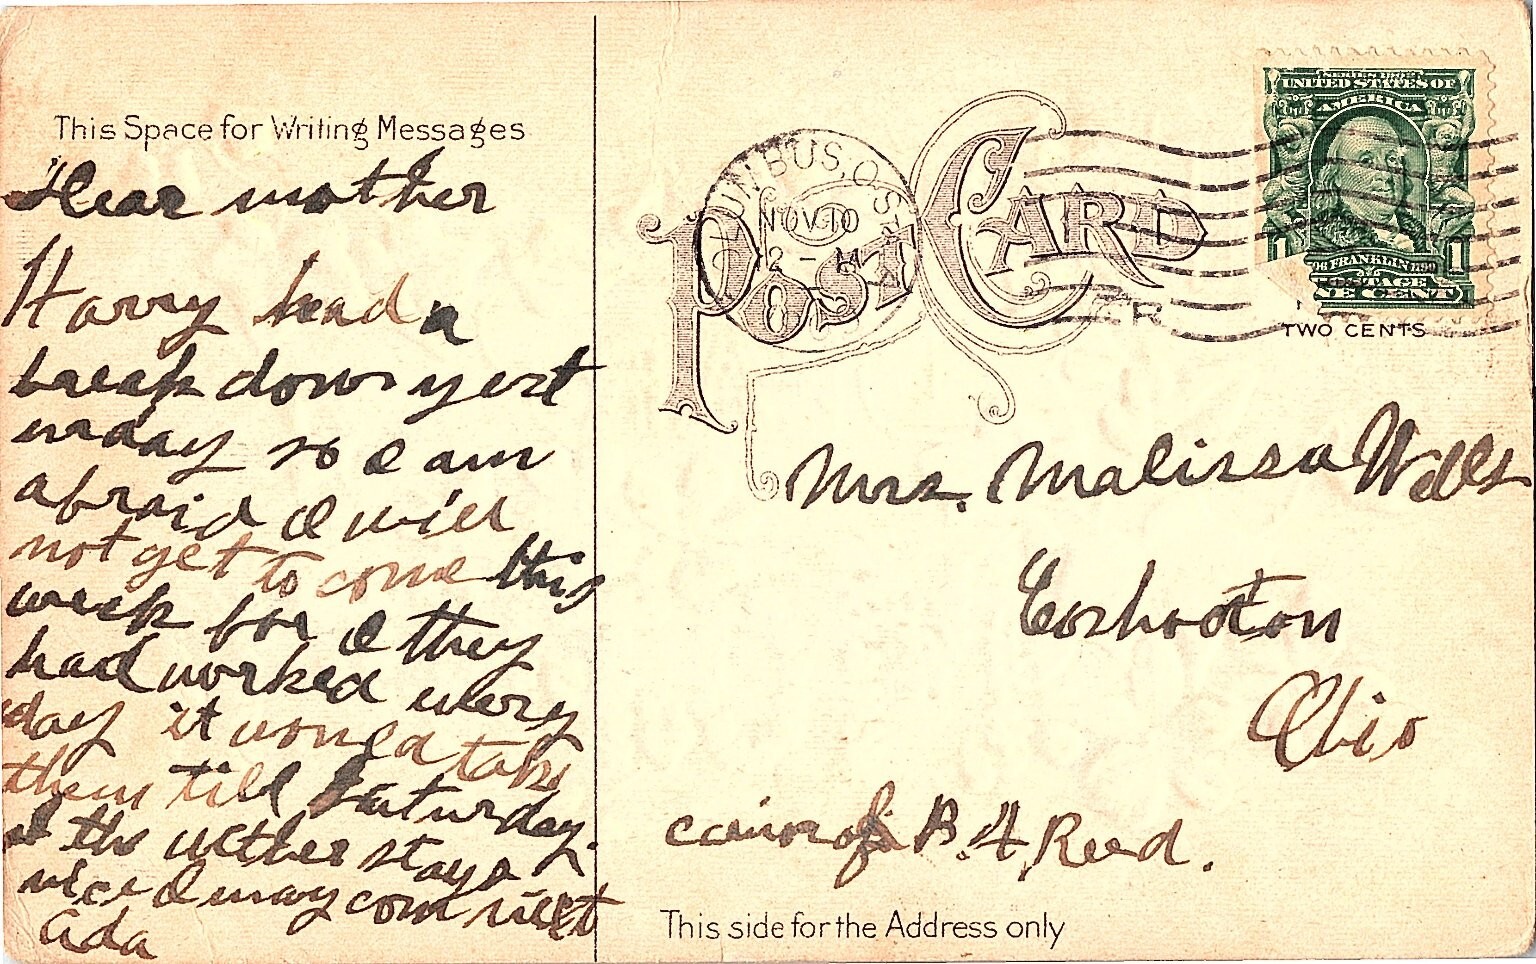 This Space for Writing Messages
Dear mother
Harry had a
break down yest
urday so I am
afraid I will
not get to come this
week for if they
had worked every
day it would take
them till Saturday.
if the wether stays
nice I may com next
Ada
COLUMBUS, O. STA
NOV 10
12 - M
8
POST CARD
SERIES 1902
UNITED STATES OF
AMERICA
1 FRANKLIN 1790 1
POSTAGE
ONE CENT
TWO CENTS
Mrs. Malissa Wells
Coshocton
Ohio
caire of B. F. Reed.
This side for the Address only